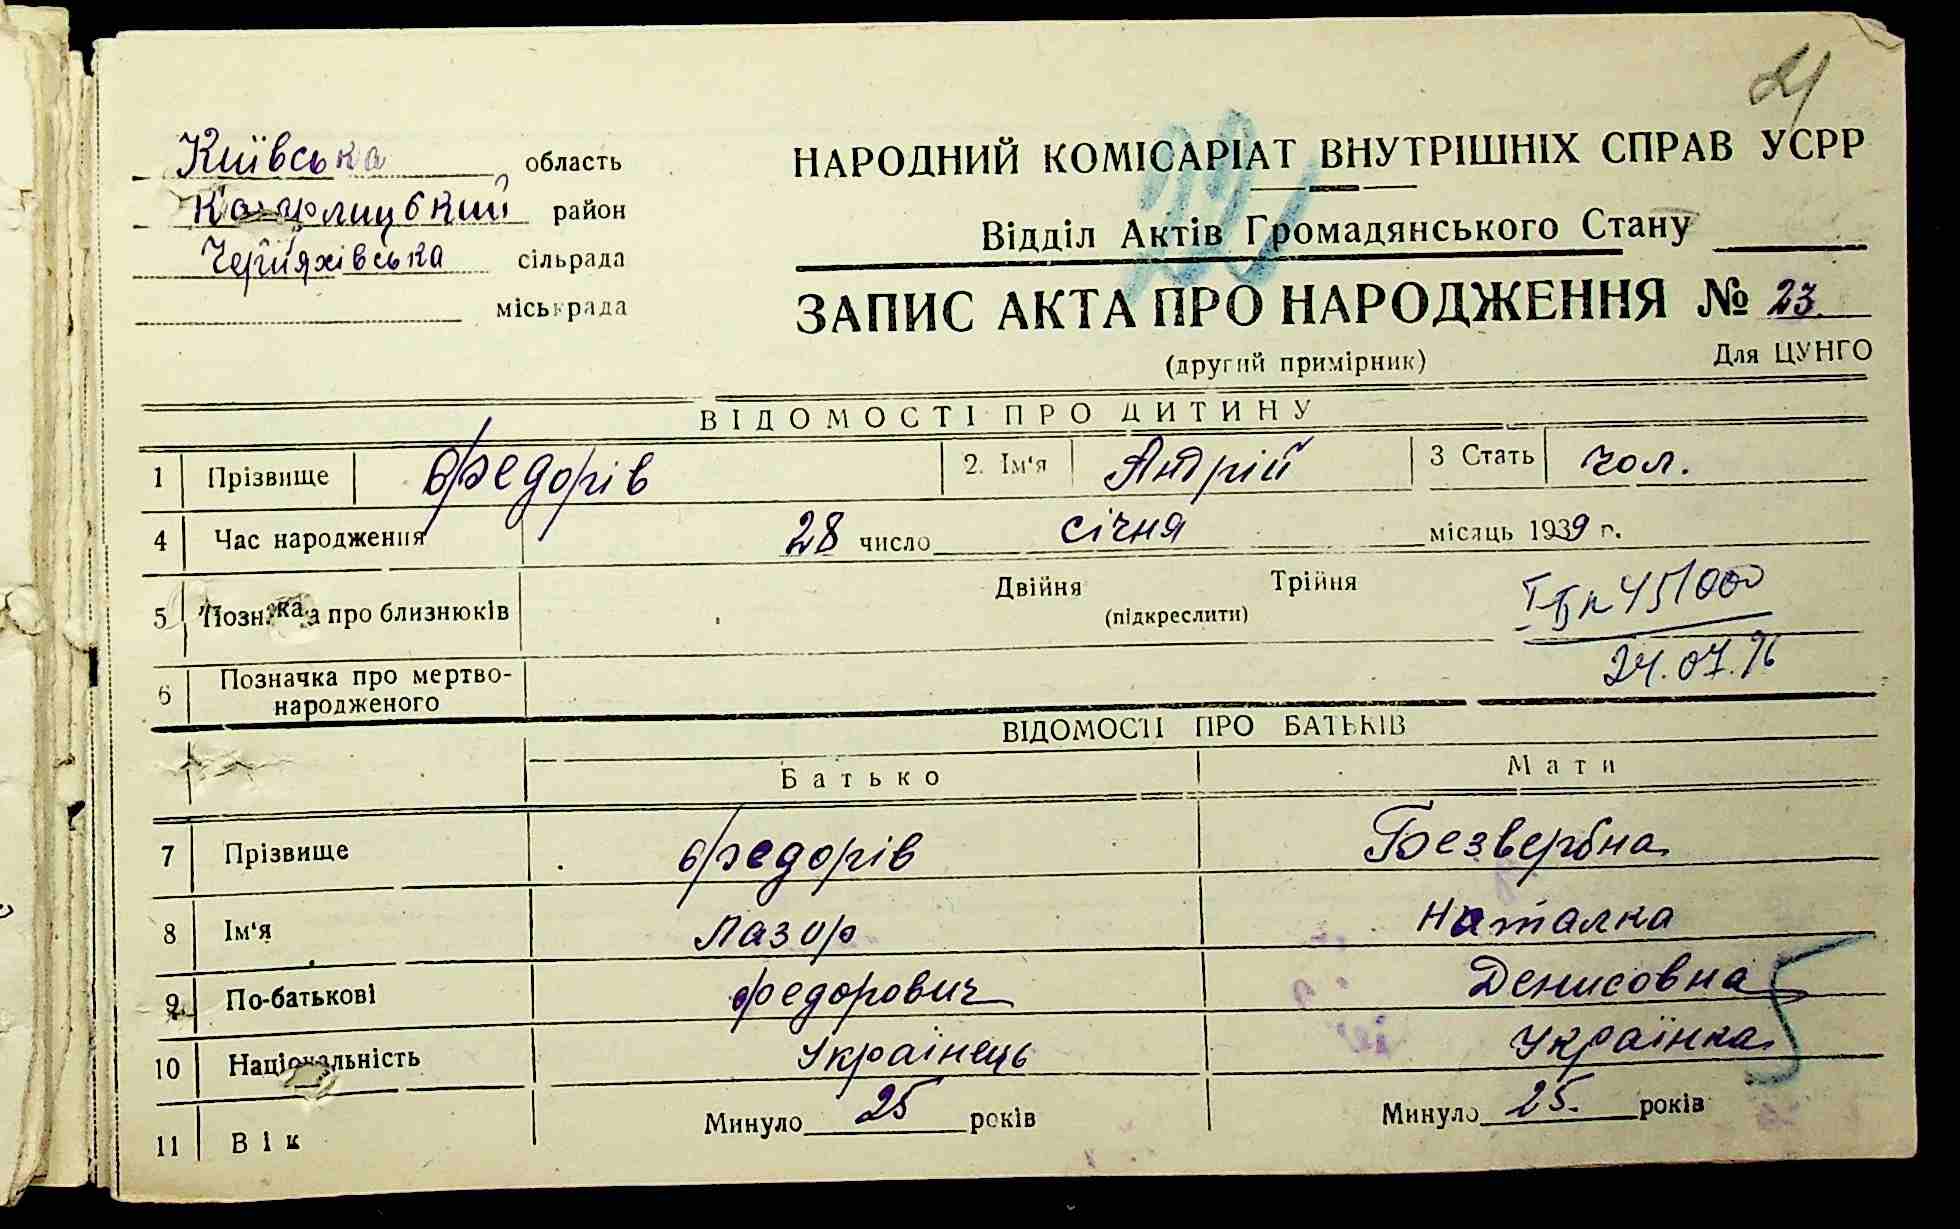 21
Київська область
Кагарлицький район
Черняхівська сільрада
міськрада
22
НАРОДНИЙ КОМІСАРІАТ ВНУТРІШНІХ СПРАВ УСРР
Відділ Актів Громадянського Стану
ЗАПИС АКТА ПРО НАРОДЖЕННЯ № 23
(другий примірник) Для ЦУНГО
ВІДОМОСТІ ПРО ДИТИНУ
1 Прізвище Федорів 2. Ім'я Андрій 3 Стать чол.
4 Час народження 28 число січня місяць 1939 г.
5 Позначка про близнюків Двійня Трійня
(підкреслити)
І-БК 451000
24.07.76
6 Позначка про мертво-
народженого
ВІДОМОСТІ ПРО БАТЬКІВ
Батько Мати
7 Прізвище Федорів Безвербна
8 Ім'я Лазор Наталка
9 По-батькові Федорович Денисовна
10 Національність Українець Українка
11 Вік Минуло 25 років Минуло 25. років